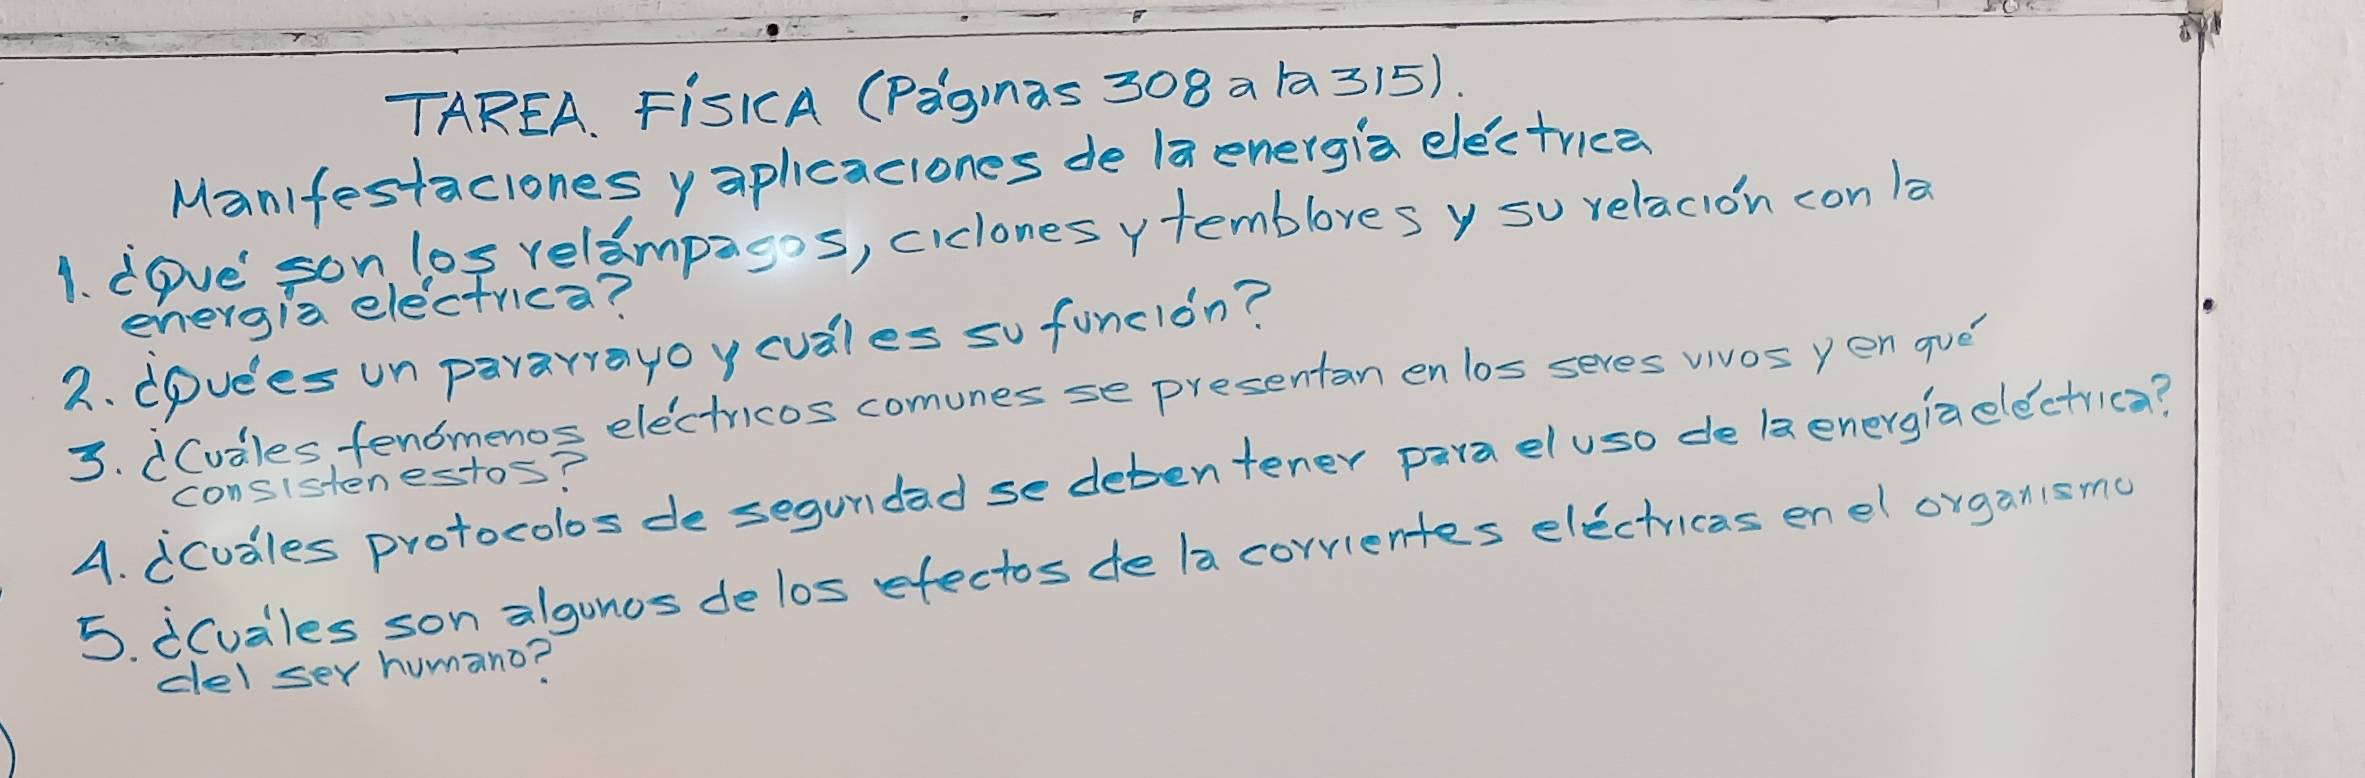 TAREA. FÍSICA (Páginas 308 a la 315).
Manifestaciones y aplicaciones de la energía eléctrica
1. ¿Qué son los relámpagos, ciclones y temblores y su relación con la
energía eléctrica?
2. ¿Qué es un pararrayo y cuál es su función?
3. ¿Cuáles fenómenos eléctricos comunes se presentan en los seres vivos y en qué
consisten estos?
4. ¿Cuáles protocolos de seguridad se deben tener para el uso de la energía eléctrica?
5. ¿Cuáles son algunos de los efectos de la corrientes eléctricas en el organismo
del ser humano?